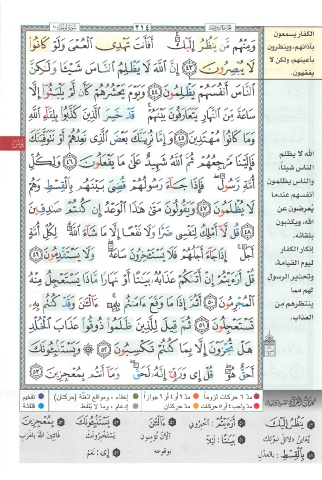 ٢١٤
وَمِنْهُم مَّن يَنظُرُ إِلَيْكَ أَفَأَنتَ تَهْدِى الْعُمْىَ وَلَوْ كَانُوا
لَا يُبْصِرُونَ ٤٣ إِنَّ اللَّهَ لَا يَظْلِمُ النَّاسَ شَيْئًا وَلَٰكِنَّ
النَّاسَ أَنفُسَهُمْ يَظْلِمُونَ ٤٤ وَيَوْمَ يَحْشُرُهُمْ كَأَن لَّمْ يَلْبَثُوا إِلَّا
سَاعَةً مِّنَ النَّهَارِ يَتَعَارَفُونَ بَيْنَهُمْ قَدْ خَسِرَ الَّذِينَ كَذَّبُوا بِلِقَاءِ اللَّهِ
وَمَا كَانُوا مُهْتَدِينَ ٤٥ وَإِمَّا نُرِيَنَّكَ بَعْضَ الَّذِى نَعِدُهُمْ أَوْ نَتَوَفَّيَنَّكَ
فَإِلَيْنَا مَرْجِعُهُمْ ثُمَّ اللَّهُ شَهِيدٌ عَلَىٰ مَا يَفْعَلُونَ ٤٦ وَلِكُلِّ
أُمَّةٍ رَّسُولٌ فَإِذَا جَاءَ رَسُولُهُمْ قُضِىَ بَيْنَهُم بِالْقِسْطِ وَهُمْ
لَا يُظْلَمُونَ ٤٧ وَيَقُولُونَ مَتَىٰ هَٰذَا الْوَعْدُ إِن كُنتُمْ صَٰدِقِينَ
٤٨ قُل لَّا أَمْلِكُ لِنَفْسِى ضَرًّا وَلَا نَفْعًا إِلَّا مَا شَاءَ اللَّهُ لِكُلِّ أُمَّةٍ
أَجَلٌ إِذَا جَاءَ أَجَلُهُمْ فَلَا يَسْتَـْٔخِرُونَ سَاعَةً وَلَا يَسْتَقْدِمُونَ ٤٩
قُلْ أَرَءَيْتُمْ إِنْ أَتَىٰكُمْ عَذَابُهُ بَيَٰتًا أَوْ نَهَارًا مَّاذَا يَسْتَعْجِلُ مِنْهُ
الْمُجْرِمُونَ ٥٠ أَثُمَّ إِذَا مَا وَقَعَ ءَامَنتُم بِهِ ءَآلْـَٰٔنَ وَقَدْ كُنتُم بِهِ
تَسْتَعْجِلُونَ ٥١ ثُمَّ قِيلَ لِلَّذِينَ ظَلَمُوا ذُوقُوا عَذَابَ الْخُلْدِ
هَلْ تُجْزَوْنَ إِلَّا بِمَا كُنتُمْ تَكْسِبُونَ ٥٢ وَيَسْتَنۢبِـُٔونَكَ
أَحَقٌّ هُوَ قُلْ إِى وَرَبِّى إِنَّهُ لَحَقٌّ وَمَا أَنتُم بِمُعْجِزِينَ ٥٣
الكفار يسمعون
بآذانهم، وينظرون
بأعينهم ولكن لا
يفقهون.
الله لا يظلم
الناس شيئاً،
والناس يظلمون
أنفسهم عندما
يُعرضون عن
الله، ويكذبون
بلقائه.
إنكار الكفار
ليوم القيامة،
وتحذير الرسول
لهم مما
ينتظرهم من
العذاب.
مد ٦ حركات لزوماً
مد ٢ أو ٤ أو ٦ جوازاً
إخفاء، ومواقع الغنّة (حركتان)
تفخيم
مد واجب ٤ أو ٥ حركات
مد حركتان
إدغام، وما لا يُلفظ
قلقلة
يَنظُرُ إِلَيْكَ
بِالْقِسْطِ: بالعدل
أَرَءَيْتُمْ: أخبروني
بَيَٰتًا: ليلاً
ءَآلْـَٰٔنَ
الآن تؤمنون
بوقوعه
يَسْتَنۢبِـُٔونَكَ
يستخبرونك
إِى: نعم
بِمُعْجِزِينَ